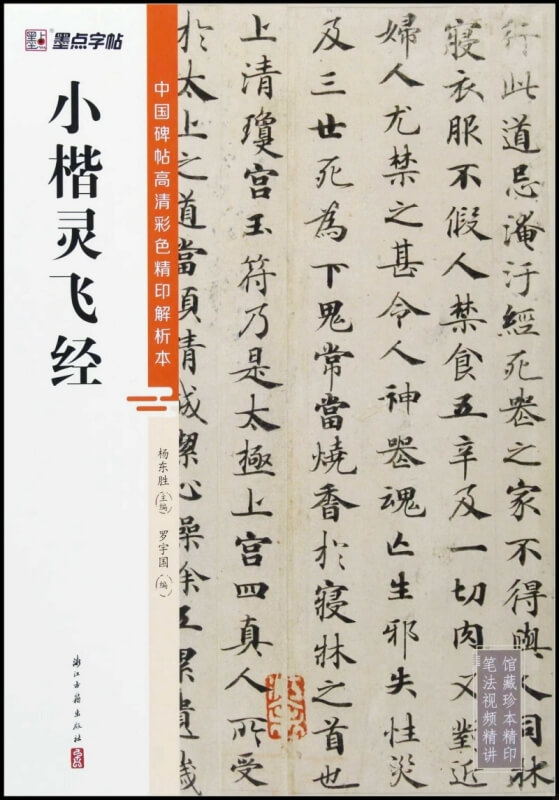 墨点字帖
小楷灵飞经
中国碑帖高清彩色精印解析本
杨东胜（主编） 罗宇国（编）
浙江古籍出版社
行此道忌淹汙經死喪之家不得與人同牀
寢衣服不假人禁食五辛及一切肉又對近
婦人尤禁之甚令人神喪魂亡生邪失性災
及三世死為下鬼常當燒香於寢牀之首也
上清瓊宫玉符乃是太極上宫四真人所受
於太上之道當須精誠潔心澡除五累遺穢
馆藏珍本精印
笔法视频精讲